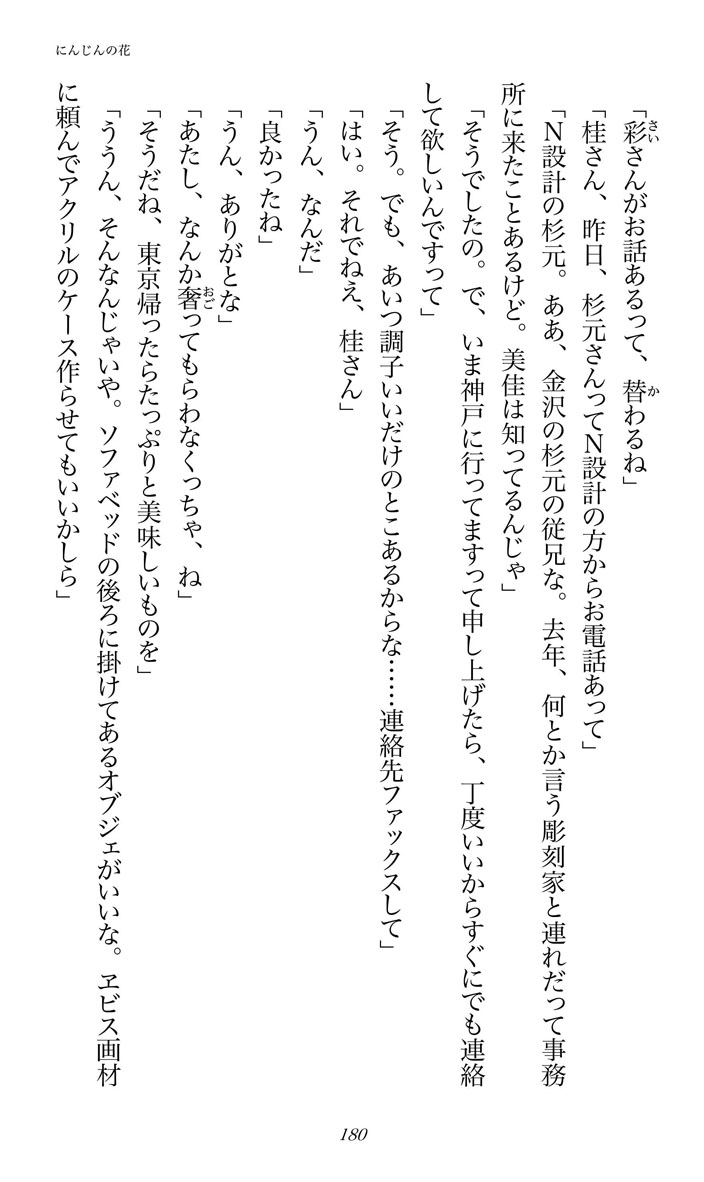 にんじんの花
「彩さんがお話あるって、替わるね」
「桂さん、昨日、杉元さんってＮ設計の方からお電話あって」
「Ｎ設計の杉元。ああ、金沢の杉元の従兄な。去年、何とか言う彫刻家と連れだって事務
所に来たことあるけど。美佳は知ってるんじゃ」
「そうでしたの。で、いま神戸に行ってますって申し上げたら、丁度いいからすぐにでも連絡
して欲しいんですって」
「そう。でも、あいつ調子いいだけのとこあるからな……連絡先ファックスして」
「はい。それでねえ、桂さん」
「うん、なんだ」
「良かったね」
「うん、ありがとな」
「あたし、なんか奢ってもらわなくっちゃ、ね」
「そうだね、東京帰ったらたっぷりと美味しいものを」
「ううん、そんなんじゃいや。ソファベッドの後ろに掛けてあるオブジェがいいな。ヱビス画材
に頼んでアクリルのケース作らせてもいいかしら」
180